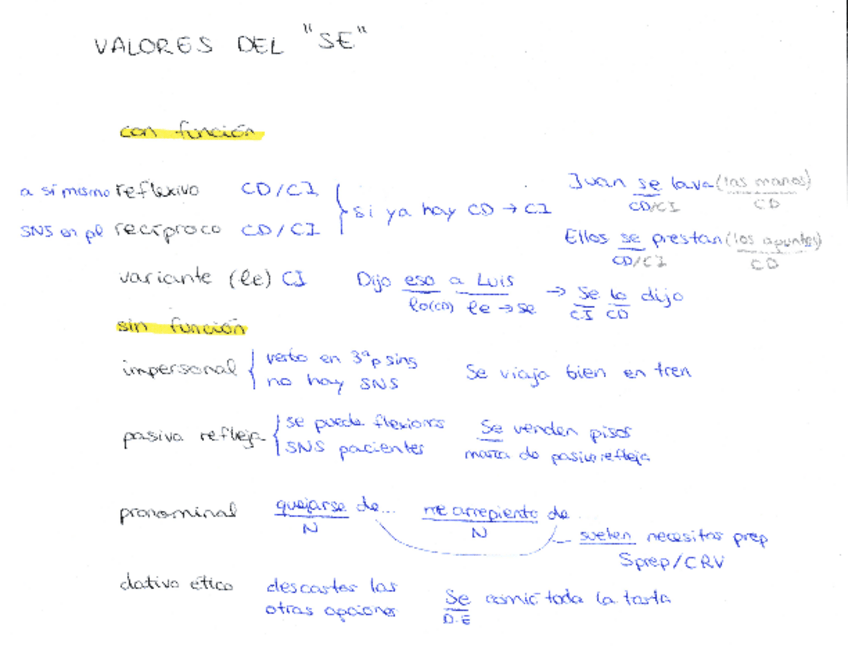 VALORES DEL "SE"
con función
a sí mismo reflexivo CD/CI
SNS en pl recíproco CD/CI
si ya hay CD → CI
Juan se lava (las manos)
CD/CI CD
Ellos se prestan (los apuntes)
CD/CI CD
variante (le) CI Dijo eso a Luis → Se lo dijo
lo(CD) le → se CI CD
sin función
impersonal verbo en 3ªp sing Se viaja bien en tren
no hay SNS
pasiva refleja se puede flexionar Se venden pisos
SNS pacientes marca de pasiva refleja
pronominal quejarse de... me arrepiento de
N N suelen necesitar prep
Sprep/CRV
dativo ético descartar las Se comió toda la tarta
otras opciones D.E